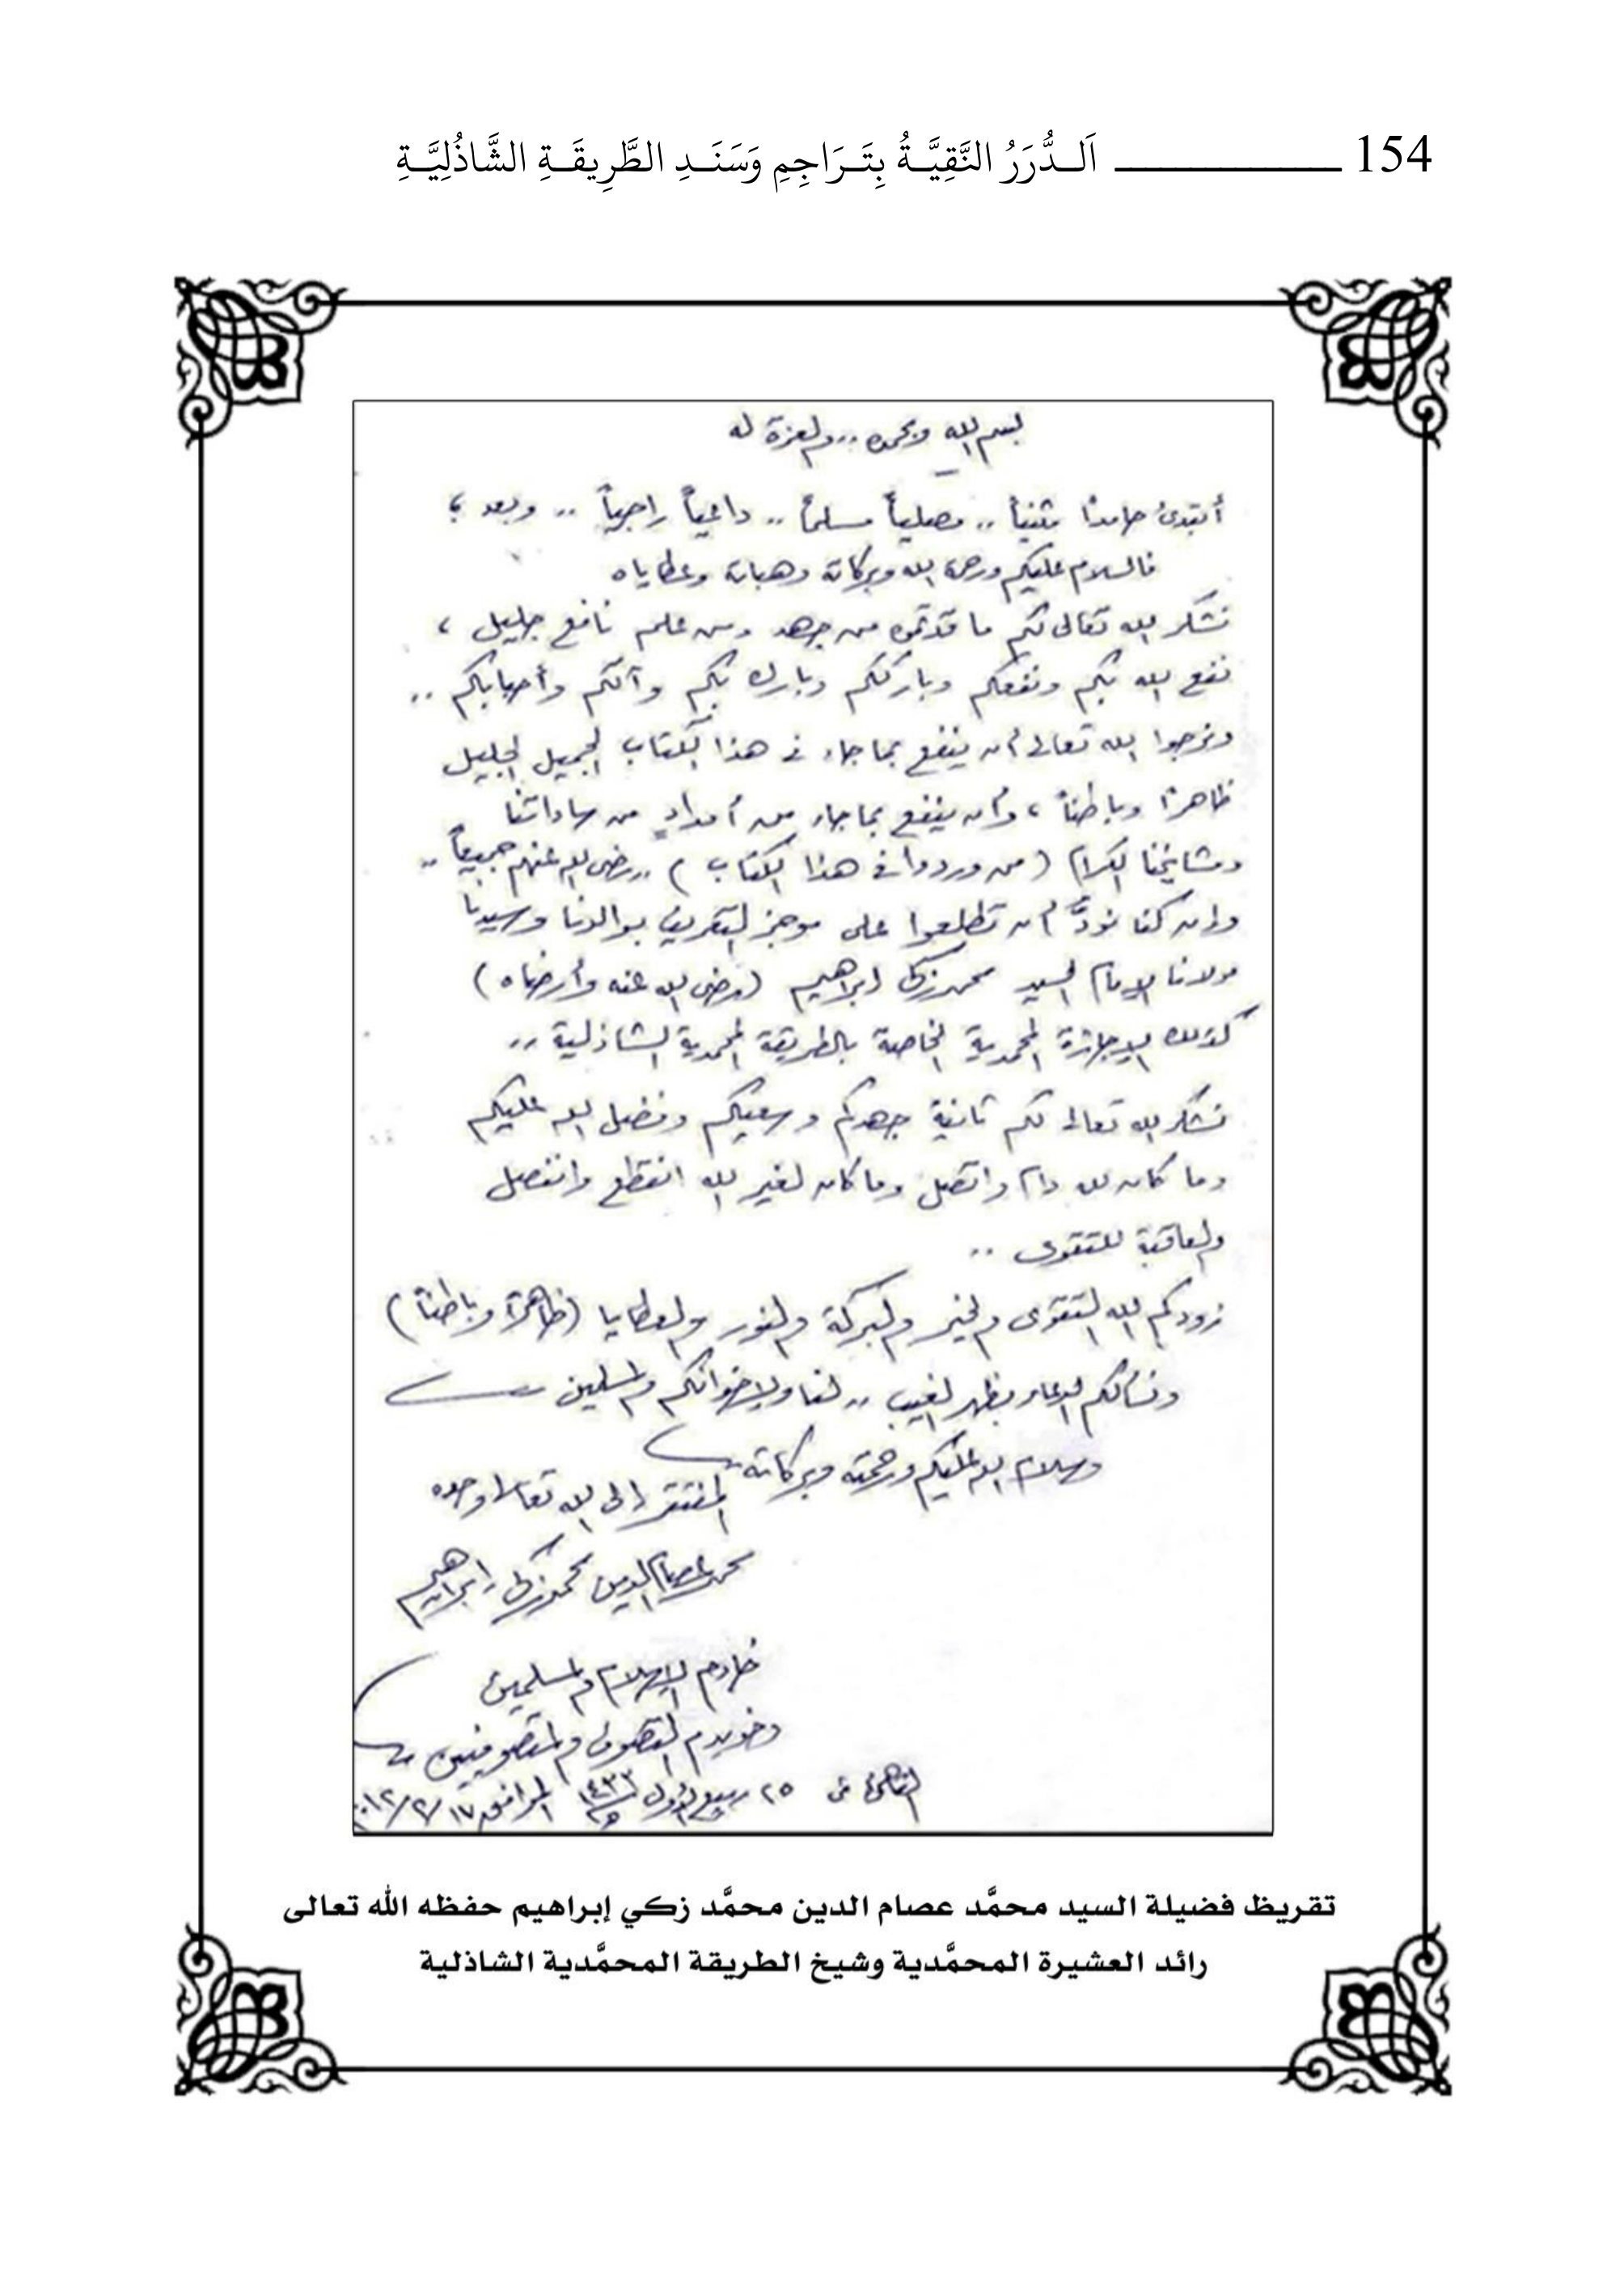 154 اَلدُّرَرُ النَّقِيَّةُ بِتَرَاجِمِ وَسَنَدِ الطَّرِيقَةِ الشَّاذُلِيَّةِ
بسم الله وبحمده .. والعزة له
أبتدئ حامدًا مثنياً .. مصلياً مسلماً .. داعياً راجياً .. وبعد ؛
فالسلام عليكم ورحمة الله وبركاته وهباته وعطاياه
نشكر الله تعالى لكم ما قدمتموه من جهد ومن علم نافع جليل ،
نفع الله بكم ونفعكم وبارككم وبارك بكم وآلكم وأحبابكم ..
ونرجوا الله تعالى أن ينفع بما جاء فى هذا الكتاب الجميل الجليل
ظاهرًا وباطناً ، وأن ينفع بما جاء من أمدادٍ من ساداتنا
ومشايخنا الكرام (من وردوا فى هذا الكتاب) .. رضى الله عنهم جميعاً ..
وإن كنا نودُّ أن تطلعوا على موجز التعريف بوالدنا وسيدنا
مولانا الإمام السيد محمد زكى ابراهيم (رضى الله عنه وأرضاه)
كذلك الإجازة المحمدية الخاصة بالطريقة المحمدية الشاذلية ..
نشكر الله تعالى لكم ثانية جهدكم وسعيكم وفضل الله عليكم
وما كان لله دام واتصل وما كان لغير الله انقطع وانفصل
والعاقبة للتقوى ..
زودكم الله التقوى والخير والبركة والنور والعطايا (ظاهرًا وباطناً)
ونسألكم الدعاء بظهر الغيب .. لنا ولإخوانكم والمسلمين
وسلام الله عليكم ورحمته وبركاته
المفتقر إلى الله تعالى وحده
محمد عصام الدين محمد زكى إبراهيم
خادم الإسلام والمسلمين
وخويدم التصوف والمتصوفين
القاهرة فى ٢٥ ربيع الأول ١٤٣٣هـ الموافق ١٧/٢/٢٠١٢
تقريظ فضيلة السيد محمَّد عصام الدين محمَّد زكي إبراهيم حفظه الله تعالى
رائد العشيرة المحمَّدية وشيخ الطريقة المحمَّدية الشاذلية